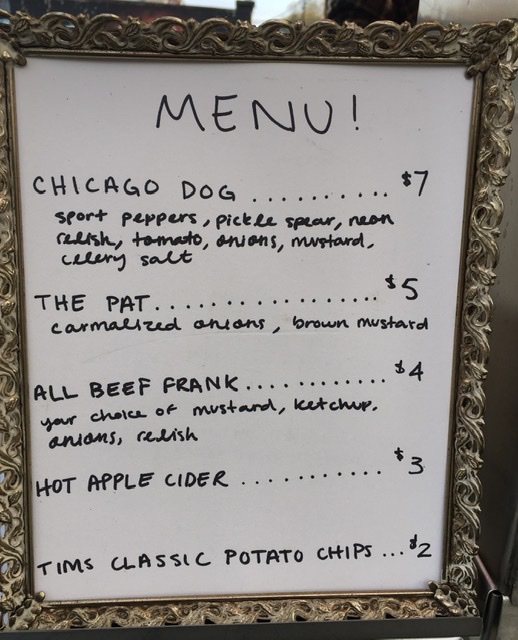 MENU!
CHICAGO DOG .......... $7
sport peppers, pickle spear, neon
relish, tomato, onions, mustard,
celery salt
THE PAT.................. $5
carmalized onions, brown mustard
ALL BEEF FRANK............ $4
your choice of mustard, ketchup,
onions, relish
HOT APPLE CIDER ........... $3
TIMS CLASSIC POTATO CHIPS ... $2